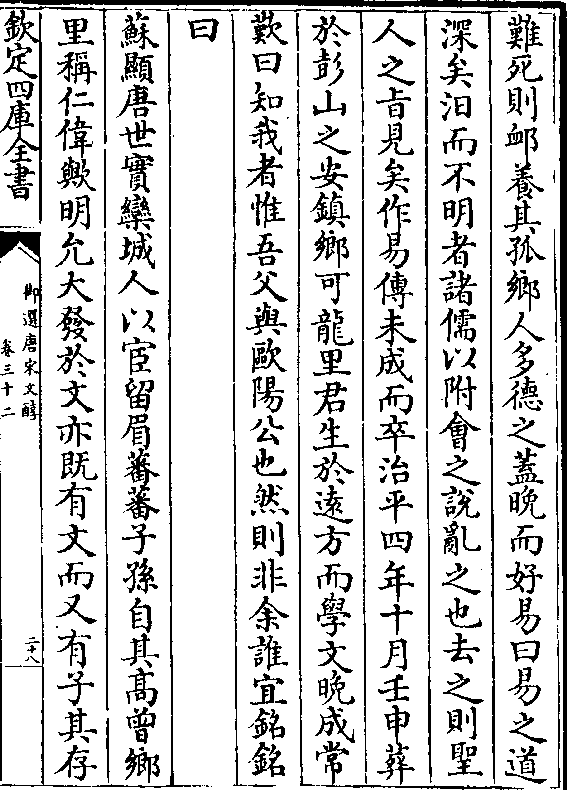 難死則䘏養其孤鄉人多德之蓋晚而好易曰易之道
深矣汨而不明者諸儒以附會之說亂之也去之則聖
人之旨見矣作易傳未成而卒治平四年十月壬申葬
於彭山之安鎮鄉可龍里君生於逺方而學文晚成常
歎曰知我者惟吾父與歐陽公也然則非余誰宜銘銘
曰
蘇顯唐世實欒城人以宦留眉蕃蕃子孫自其髙曾鄉
里稱仁偉歟明允大發於文亦既有文而又有子其存
欽定四庫全書
御選唐宋文醇
卷三十二
二十八